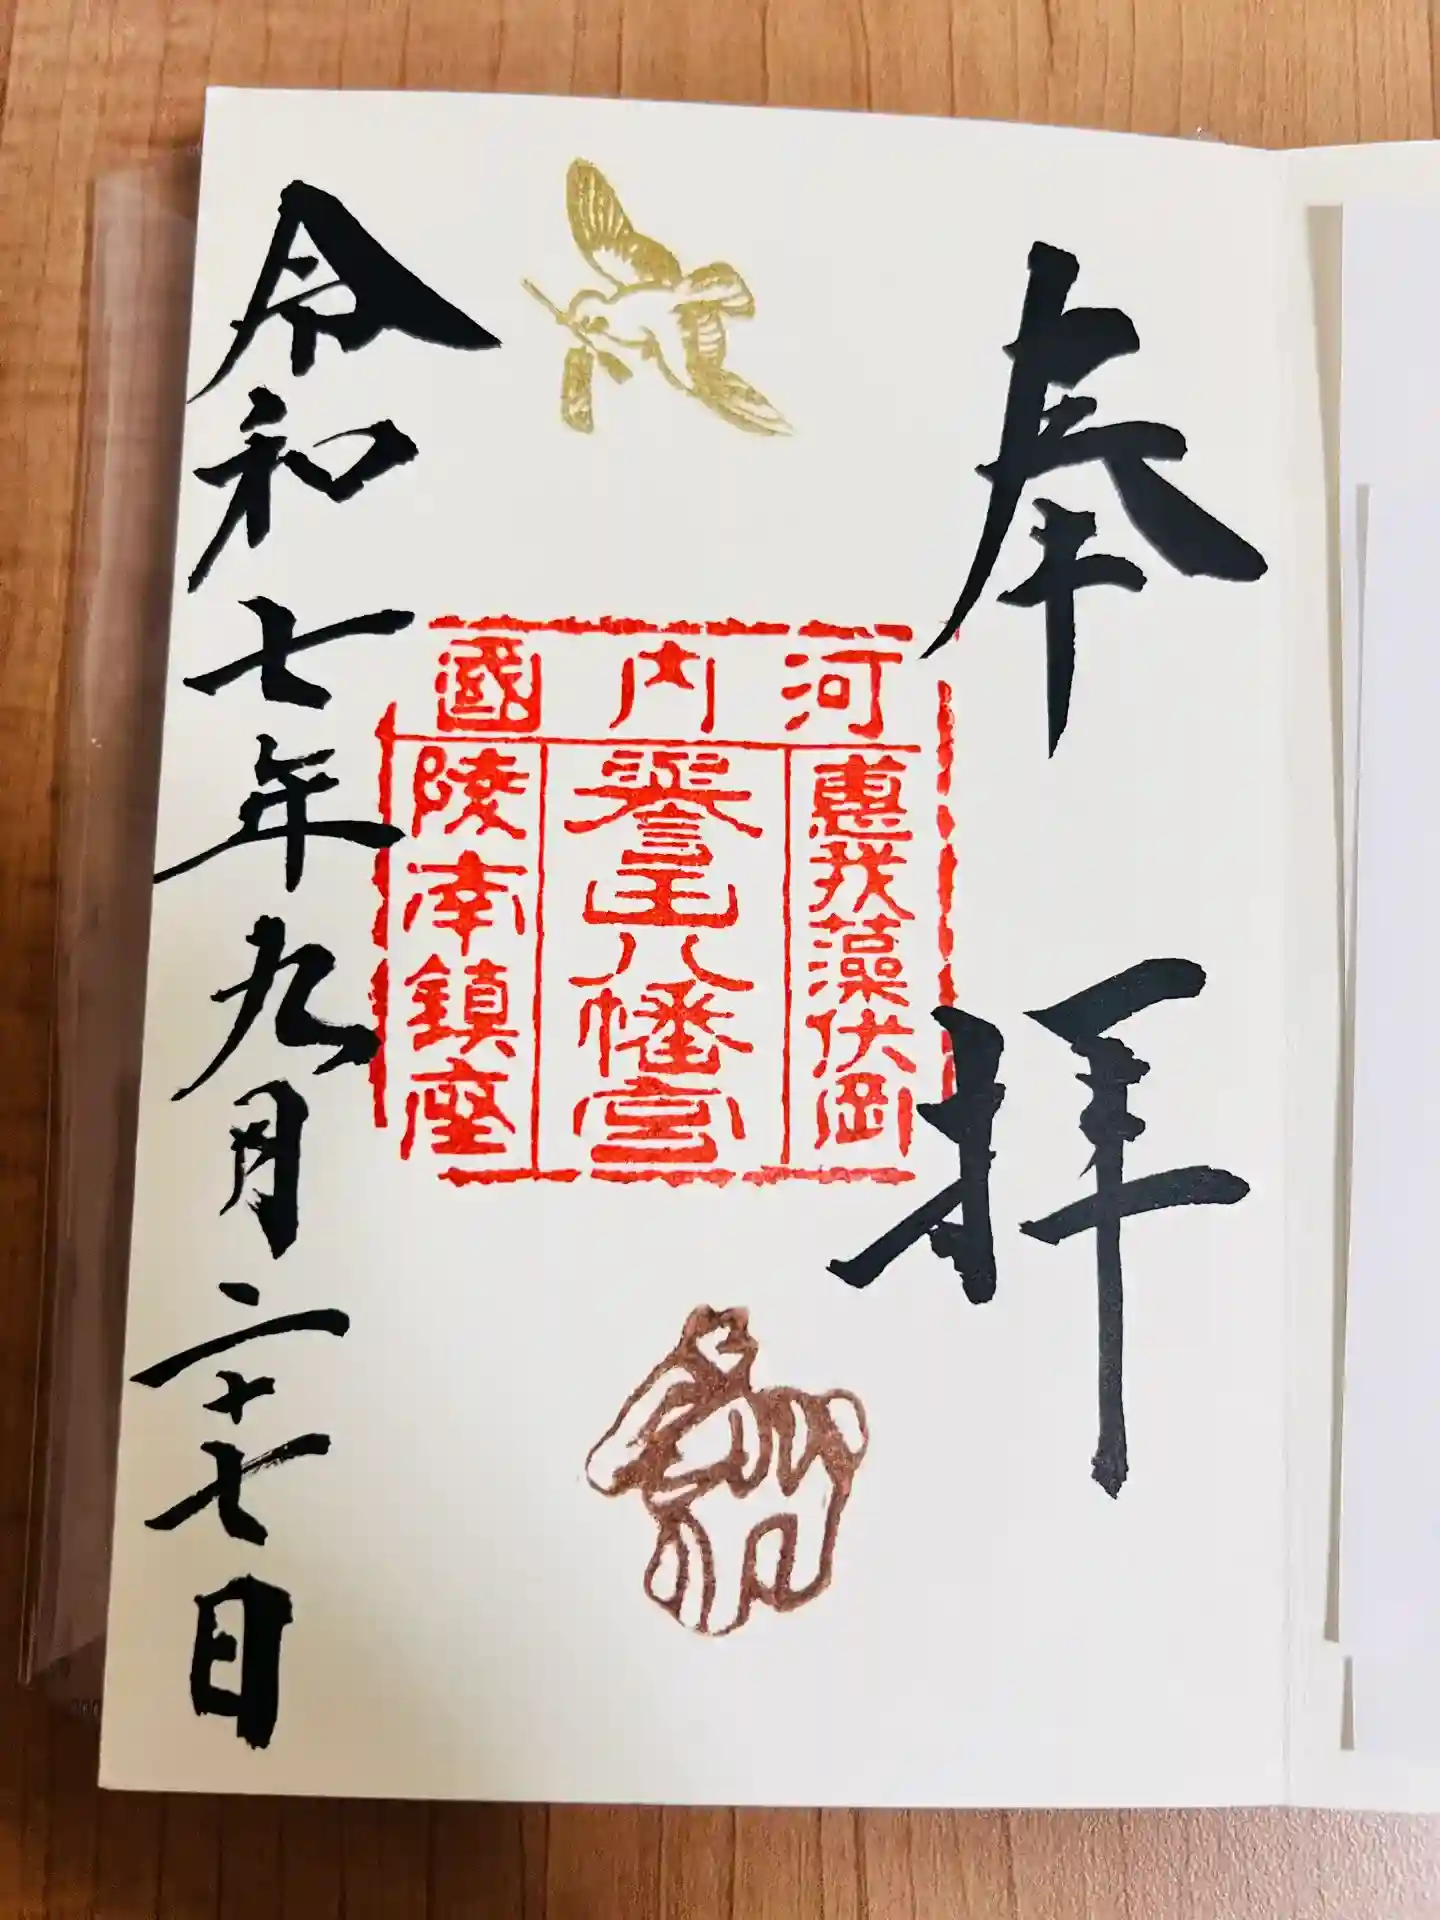 奉拝
河内國
惠我藻伏岡
誉田八幡宮
陵南鎮座
令和七年九月二十七日